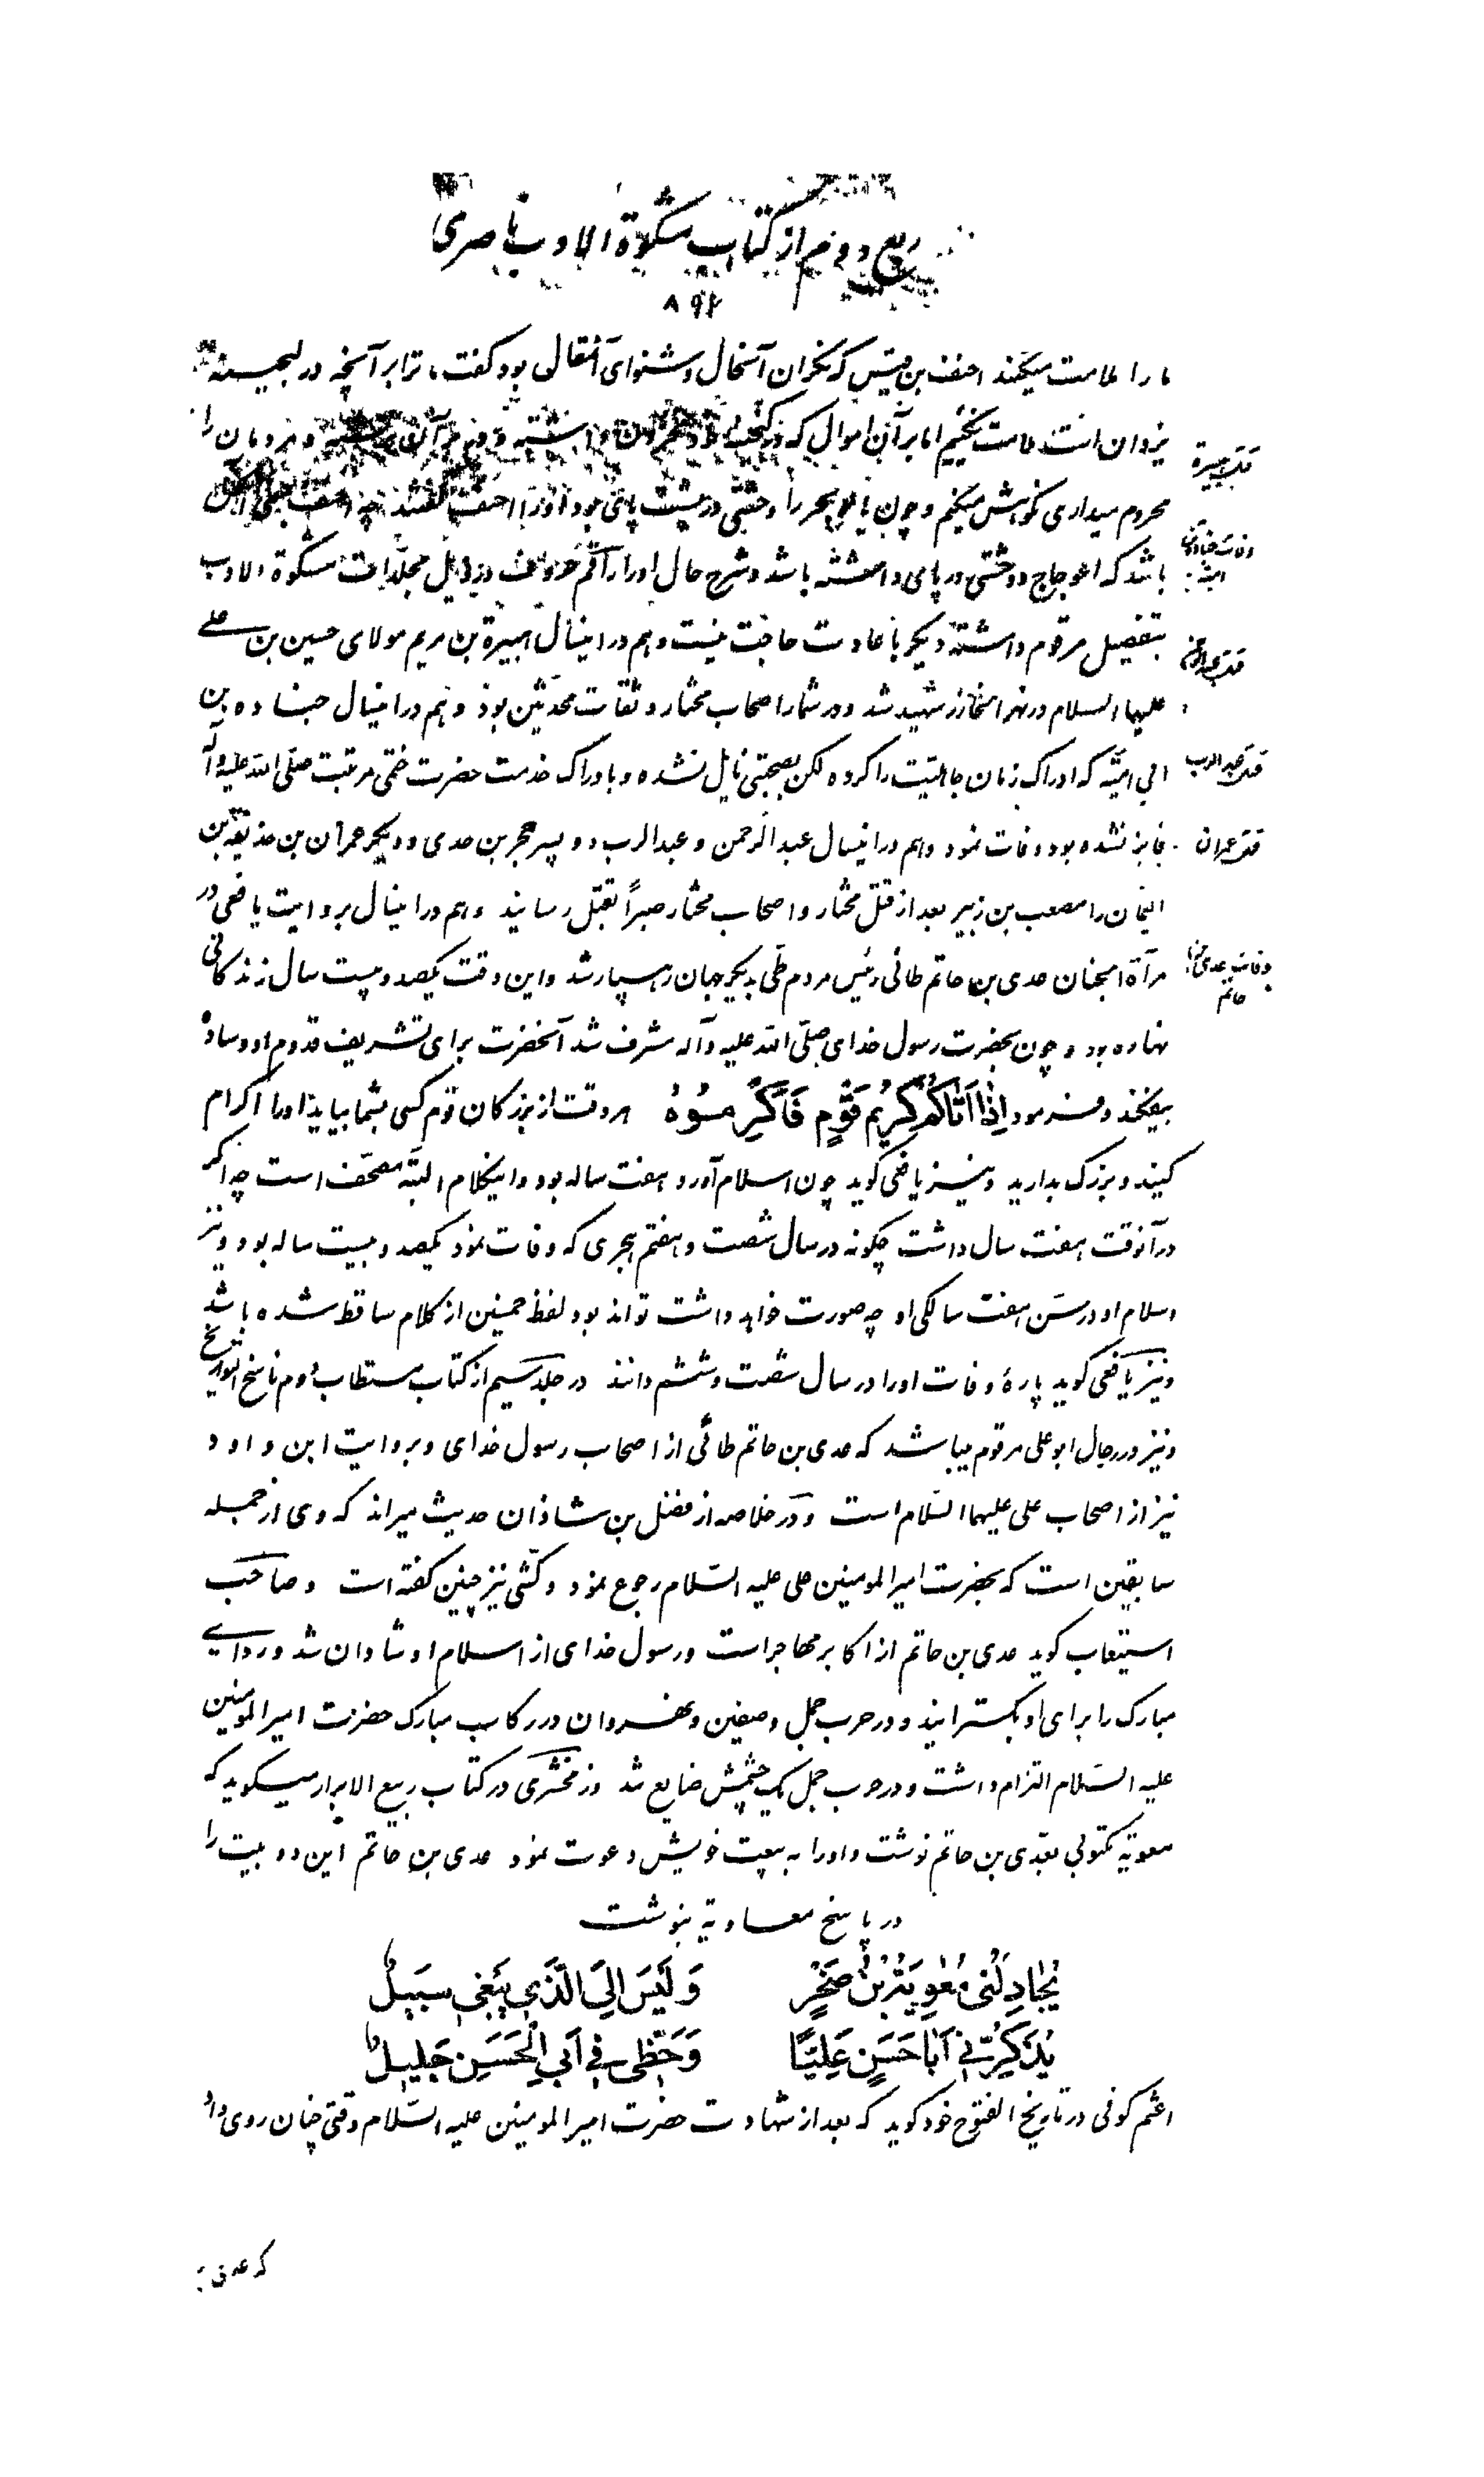 ربع دوم از کتاب مشکوة الادب ناصری
۸۹۴
ما را ملامت میکند احنف بن قیس که نگران آنحال و شنوای آنمقال بود گفت ترا بر آنچه در
یزدان است ملامت نکنیم اما بر آن اموال که در و مردمان را
محروم میداری نکوهش میکنیم و چون با بو بحر را وحشتی در پشت پای بود او را احنف گفتند چه احنف بمعنی
باشد که اعوجاج و وحشتی در پای داشته باشد و شرح حال او را راقم حروف در ذیل مجلدات مشکوة الادب
بتفصیل مرقوم داشته دیگر باعادت حاجت نیست و هم در اینسال هبیرة بن مریم مولای حسین بن علی
علیهما السلام در نهر الخازر شهید شد و در شمار اصحاب مختار و ثقات محدثین بود و هم در اینسال جناده بن
ابی امیه که ادراک زمان جاهلیت را کرده لکن بصحبتی نایل نشده و بادراک خدمت حضرت ختمی مرتبت صلی الله علیه و آله
فایز نشده بود وفات نمود و هم در اینسال عبد الرحمن و عبد الرب دو پسر حجر بن عدی و دیگر عمران بن حذیفة بن
الیمان را مصعب بن زبیر بعد از قتل مختار و اصحاب مختار صبراً بقتل رسانید و هم در اینسال بروایت یافعی در
مرآة الجنان عدی بن حاتم طائی رئیس مردم طی بدیگر جهان رهسپار شد و این وقت یکصد و بیست سال زندگانی
نهاده بود و چون بحضرت رسول خدای صلی الله علیه و آله مشرف شد آنحضرت برای تشریف قدوم او وساده
بیفکند و فرمود اِذٰا اَتٰاکُمْ کَرِیمُ قَوْمٍ فَاَکْرِمُوُهُ هر وقت از بزرگان قوم کسی بشما بیاید او را اکرام
کنید و بزرگ بدارید و نیز یافعی گوید چون اسلام آورد هفت ساله بود و اینکلام البته مصحف است چه اگر
در آنوقت هفت سال داشت چگونه در سال شصت و هفتم هجری که وفات نمود یکصد و بیست ساله بود و نیز
اسلام او در سن هفت سالگی او چه صورت خواهد داشت تواند بود لفظ خمسین از کلام ساقط شده باشد
و نیز یافعی گوید پارهٔ وفات او را در سال شصت و ششم دانند در جلد سیم از کتاب مستطاب دوم ناسخ التواریخ
و نیز در رجال ابو علی مرقوم میباشد که عدی بن حاتم طائی از اصحاب رسول خدای و بروایت ابن داود
نیز از اصحاب علی علیهما السلام است و در خلاصه از فضل بن شاذان حدیث میراند که وی از جمله
سابقین است که بحضرت امیر المومنین علی علیه السلام رجوع نمود و کشی نیز چنین گفته است و صاحب
استیعاب گوید عدی بن حاتم از اکابر مهاجر است و رسول خدای از اسلام او شادان شد و ردای
مبارک را برای او بگسترانید و در حرب جمل و صفین و نهروان در رکاب مبارک حضرت امیر المومنین
علیه السلام التزام داشت و در حرب جمل یک چشمش ضایع شد و زمخشری در کتاب ربیع الابرار میگوید که
معویة مکتوبی بعدی بن حاتم نوشت و او را به بیعت خویش دعوت نمود عدی بن حاتم این دو بیت را
در پاسخ معاویة بنوشت
یُجٰادِلُنی مُعٰوِیَةُ بْنُ صَخْرٍ وَ لَیْسَ اِلَی الَّذی یَبْغی سَبیلُ
یُذَکِّرُنی اَبٰا حَسَنٍ عَلِیًّا وَ حَظّی فی اَبِی الْحَسَنِ جَلیلُ
اعثم کوفی در تاریخ الفتوح خود گوید که بعد از شهادت حضرت امیر المومنین علیه السلام وقتی چنان روی داد
که عدی
قتل هبیرة
وفات جناده بن امیه
قتل عبد الرحمن
قتل عبد الرب
قتل عمران
وفات عدی بن حاتم